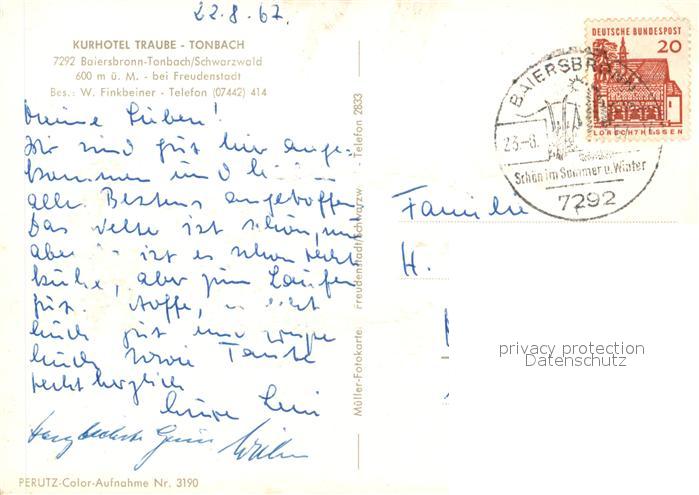 22.8.67.
KURHOTEL TRAUBE - TONBACH
7292 Baiersbronn-Tonbach/Schwarzwald
600 m ü. M. - bei Freudenstadt
Bes.: W. Finkbeiner - Telefon (07442) 414
Meine Lieben!
Wir sind gut hier ange-
kommen und
alles Bestens angetroffen
Das Wetter ist schön, nur
aber ist es schon recht
kühl, aber zum Laufen
gut. Hoffe,
Euch gut und
Euch sowie Tante
recht herzlich
Herzlichste Grüße
PERUTZ-Color-Aufnahme Nr. 3190
Müller-Fotokarte. Freudenstadt/Schwarzw. - Telefon 2833
DEUTSCHE BUNDESPOST
20
LORSCH/HESSEN
BAIERSBRONN
23.-8.
Schön im Sommer u. Winter
7292
Familie
H.
privacy protection
Datenschutz